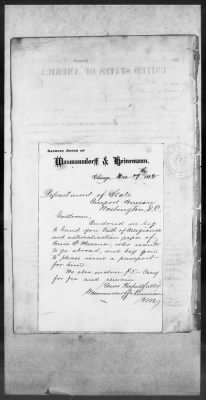 UNITED STATES OF AMERICA.
BANKING HOUSE OF
Wasmansdorff & Heinemann.
Chicago, Mar 29th 188
Department of State
Passport Bureau
Washington, D.C.
Gentlemen,
Enclosed we beg
to hand you Oath of Allegiance
and naturalization papers of
who wants
to go abroad, and beg you
to please send a passport
for him.
We also enclose $5- Curcy
for fee and remain
Yours Respectfully
Wasmansdorff & Heinemann